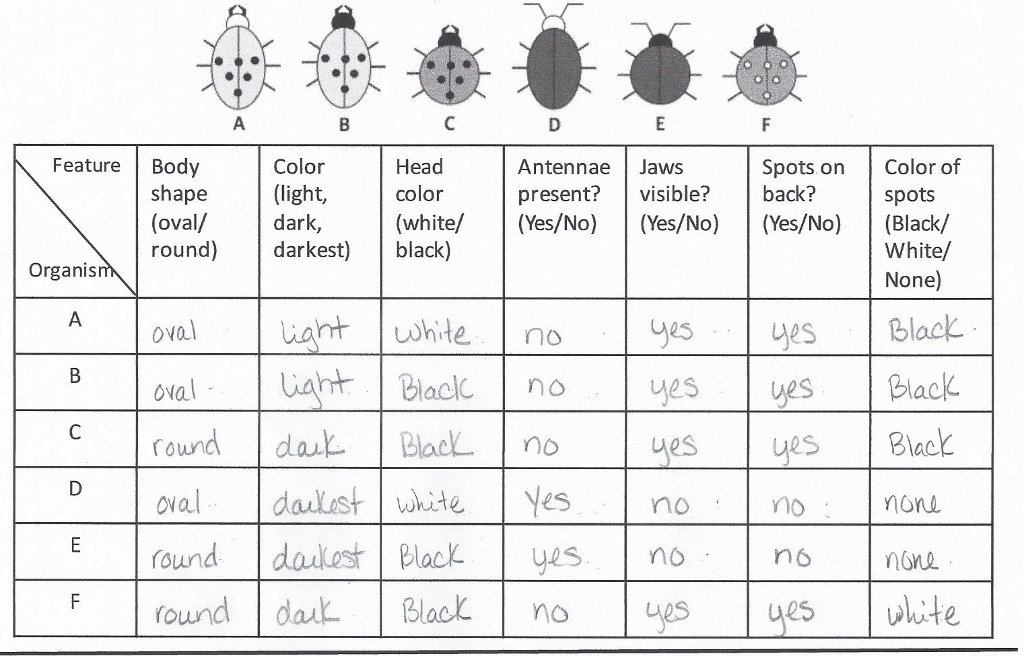 A B C D E F
Feature
Organism
Body
shape
(oval/
round)
Color
(light,
dark,
darkest)
Head
color
(white/
black)
Antennae
present?
(Yes/No)
Jaws
visible?
(Yes/No)
Spots on
back?
(Yes/No)
Color of
spots
(Black/
White/
None)
A oval light white no yes yes Black
B oval light Black no yes yes Black
C round dark Black no yes yes Black
D oval darkest white Yes no no none
E round darkest Black yes no no none
F round dark Black no yes yes white